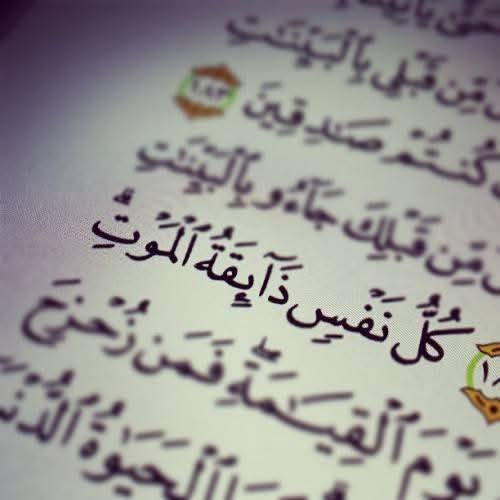 مِّن قَبْلِى بِٱلْبَيِّنَٰتِ
كُنتُمْ صَٰدِقِينَ ١٨٣
مِّن قَبْلِكَ جَآءُو بِٱلْبَيِّنَٰتِ
كُلُّ نَفْسٍ ذَآئِقَةُ ٱلْمَوْتِۗ
يَوْمَ ٱلْقِيَٰمَةِۖ فَمَن زُحْزِحَ
ٱلْحَيَوٰةُ